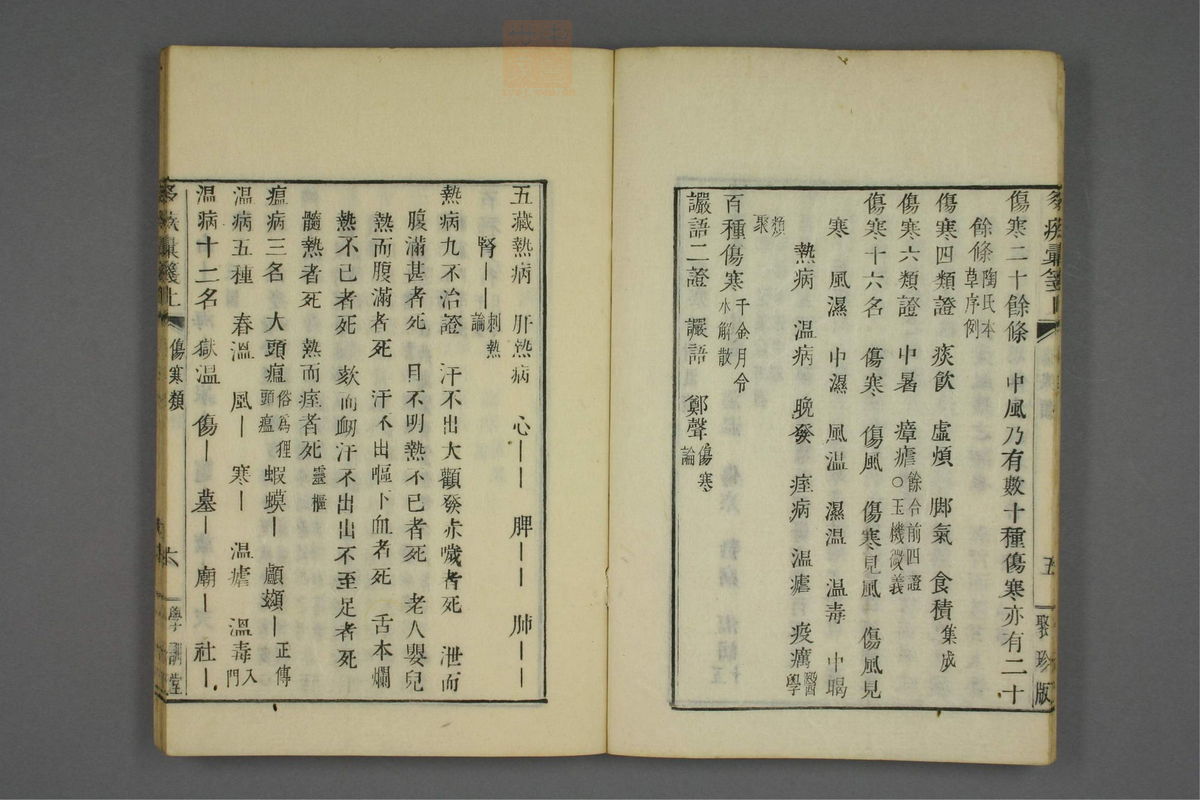 傷寒二十餘條 中風乃有數十種傷寒亦有二十
餘條 陶氏本草序例
傷寒四類證 痰飲 虛煩 脚氣 食積 集成
傷寒六類證 中暑 瘴瘧 餘合前四證○玉機微義
傷寒十六名 傷寒 傷風 傷寒見風 傷風見
寒 風濕 中濕 風温 濕温 温毒 中暍
熱病 温病 晩發 痓病 温瘧 疫癘 醫學
類聚
百種傷寒 千金月令水解散
讝語二證 讝語 鄭聲 傷寒論
五
聚珍版
五藏熱病 肝熱病 心〡〡 脾〡〡 肺〡〡
腎〡〡 刺熱論
熱病九不治證 汗不出大顴發赤噦者死 泄而
腹滿甚者死 目不明熱不已者死 老人嬰兒
熱而腹滿者死 汗不出嘔下血者死 舌本爛
熱不已者死 欬而衂汗不出出不至足者死
髓熱者死 熱而痓者死 靈樞
瘟病三名 大頭瘟 俗爲狸頭瘟 蝦蟆〡 顱䫜〡 正傳
温病五種 春温 風〡 寒〡 温瘧 温毒 入門
温病十二名 獄温 傷〡 墓〡 廟〡 社〡
傷寒類
六
學訓堂